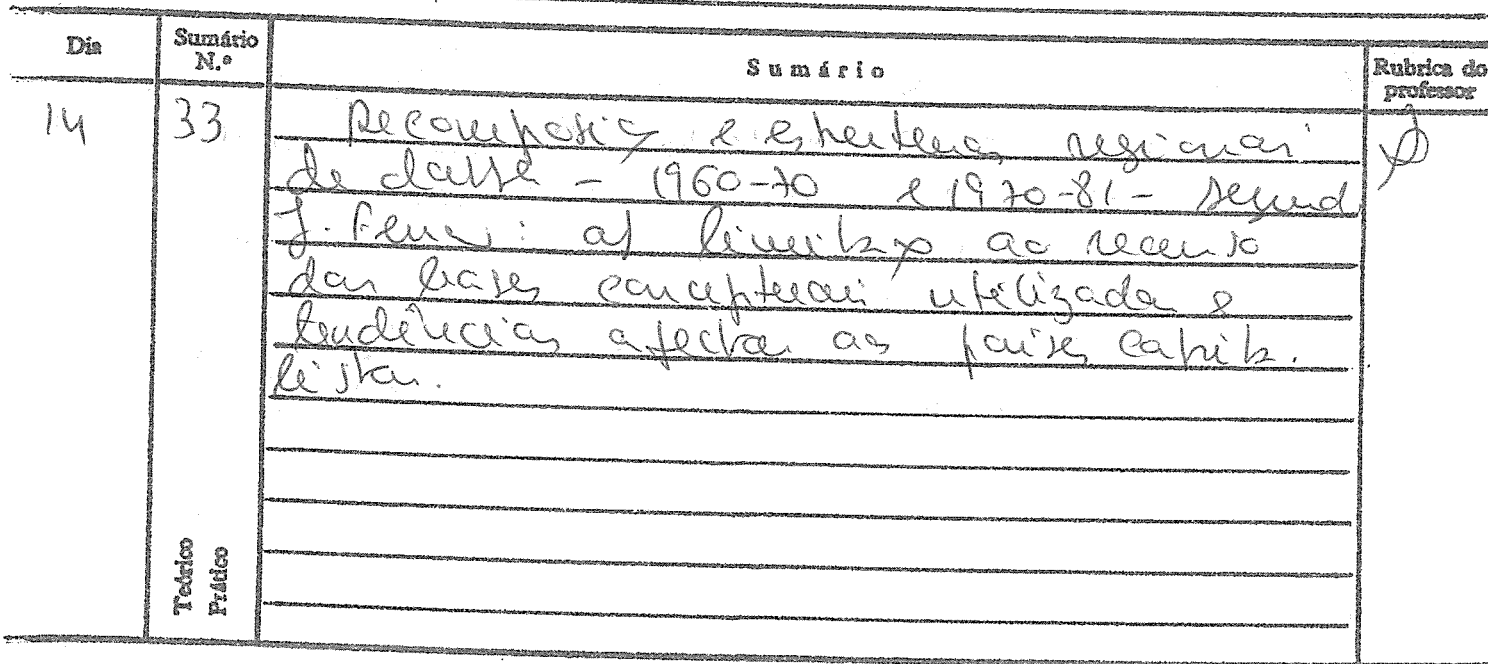 Dia Sumário N.º Sumário Rubrica do professor
14 33 Recomposição e estruturas regionais
de classe - 1960-70 e 1970-81 - segund
J. Ferrei: a) limitação ao recurso
das bases conceptuais utilizadas e
tendências afectar as países capita.
listas.
Teórico
Prático